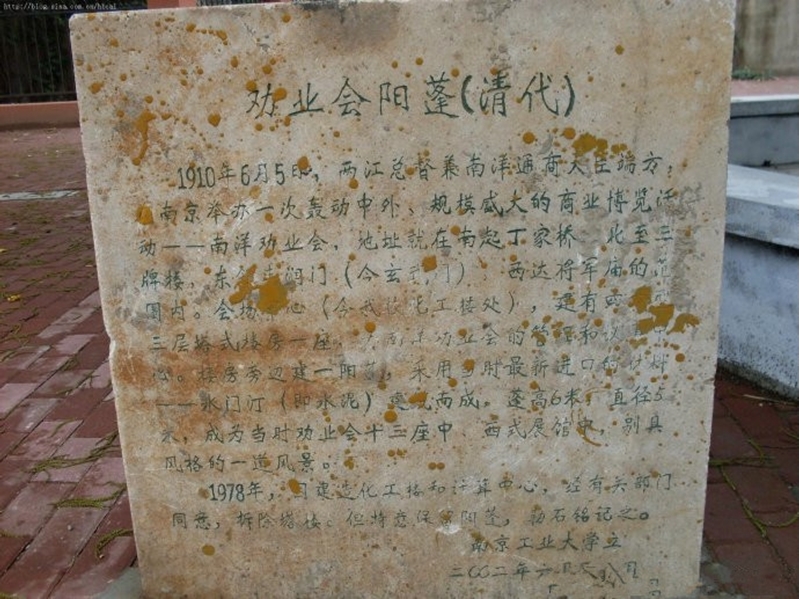 http://blog.sina.com.cn/
劝业会阳蓬(清代)
1910年6月5日，两江总督兼南洋通商大臣端方，
南京举办一次轰动中外、规模盛大的商业博览活
动——南洋劝业会，地址就在南起丁家桥 北至三
牌楼，东 门（今玄 门） 西达将军庙的范
围内。会场 心（今我校化工楼处），建有 
三层塔式楼房一座， 劝业会的管理和议
心。楼房旁边建一阳蓬，采用当时最新进口的材料
——水门汀（即水泥） 而成。蓬高6米，直径5
米，成为当时劝业会十三座中 西式展馆中，别具
风格的一道风景。
1978年，因建造化工楼和计算中心，经有关部门
同意，拆除塔楼。但特意保留阳蓬，勒石铭记之。
南京工业大学立
二〇〇二年六月 日